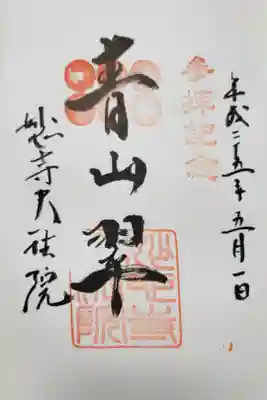 参拝記念
平成二五年五月一日
青山翠
妙心寺大法院